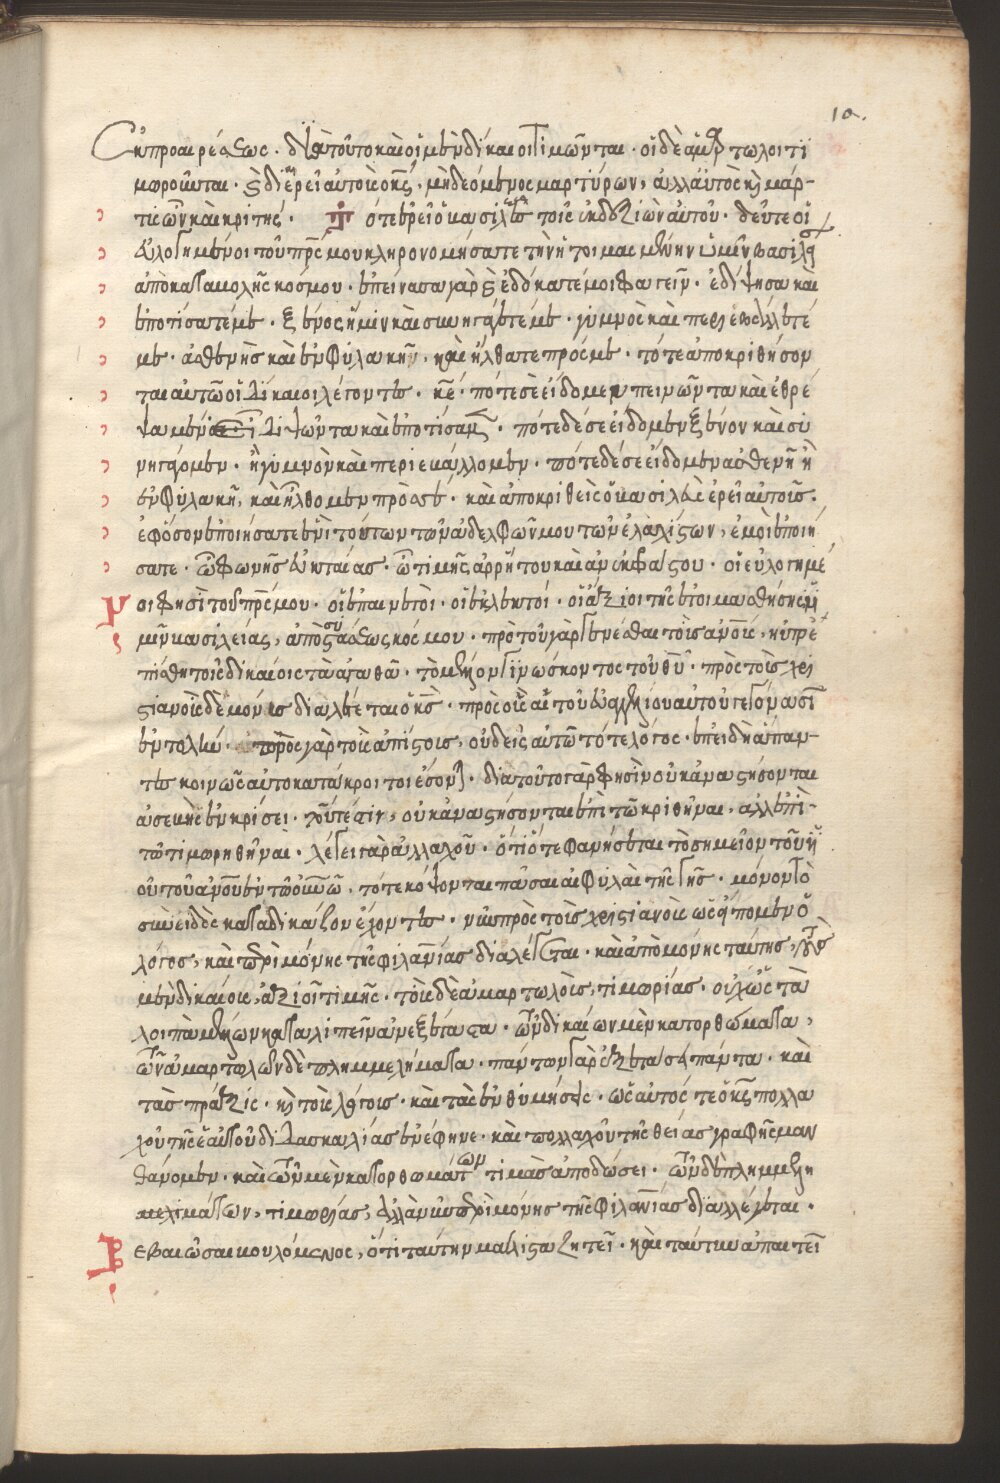 10.
ἐκ προαιρέσεως. διὰ τοῦτο καὶ οἱ μὲν δίκαιοι τιμῶνται. οἱ δὲ ἁμαρτωλοὶ τι
μωροῦνται. ἐρεῖ αὐτοῖς ὁ κς, μὴ δεόμενος μαρτύρων, ἀλλ' αὐτὸς κ μάρ-
τις ὢν καὶ κριτής. τότε ἐρεῖ ὁ βασιλεὺς τοῖς ἐκ δεξιῶν αὐτοῦ. δεῦτε οἱ
εὐλογημένοι τοῦ πρς μου κληρονομήσατε τὴν ἡτοιμασμένην ὑμῖν βασιλεί
ἀπὸ καταβολῆς κόσμου. ἐπείνασα γὰρ κ ἐδώκατέ μοι φαγεῖν. ἐδίψησα καὶ
ἐποτίσατέ με. ξένος ἤμην καὶ συνηγάγετέ με. γυμνὸς καὶ περιεβάλλετέ
με. ἀσθενὴς καὶ ἐν φυλακῆ, καὶ ἤλθατε πρός με. τότε ἀποκριθήσον
ται αὐτῶ οἱ δίκαιοι λέγοντες. κε, πότε σὲ εἴδομεν πεινῶντα καὶ ἐθρέ
ψαμεν, διψῶντα καὶ ἐποτίσαμεν. πότε δέ σε εἴδομεν ξένον καὶ συ
νηγάγομεν. ἢ γυμνὸν καὶ περιεβάλλομεν. πότε δέ σε εἴδομεν ἀσθενῆ ἢ
ἐν φυλακῆ, καὶ ἤλθομεν πρὸς σέ. καὶ ἀποκριθεὶς ὁ βασιλεὺς ἐρεῖ αὐτοῖς.
ἐφόσον ἐποιήσατε ἑνὶ τούτων τῶν ἀδελφῶν μου τῶν ἐλαχίστων, ἐμοὶ ἐποιή
σατε. ὢ φωνῆς. ὢ τιμῆς ἀρρήτου καὶ ἀνεκφράστου. οἱ εὐλογημέ
νοι φησὶ τοῦ πρς μου. οἱ ἐπαινετοί. οἱ ἐκλεκτοί. οἱ ἄξιοι τῆς ἑτοιμασθήσης ὑ
μῖν βασιλείας, ἀπὸ συστάσεως κόσμου. πρὸ τοῦ γὰρ γενέσθαι τοὺς ανους, ηὐτρέ
πισθη τοῖς δικαίοις τὰ ἀγαθὰ. τὸ μέλλον γινώσκοντος τοῦ θυ. πρὸς τοὺς χρι
στιανοὺς δὲ μόνους διαλέγεται ὁ κς. πρὸς οὓς τὸ εὐαγγέλιον αὐτοῦ γεγόνασι
ἐντολαί. πρὸς γὰρ τοὺς ἀπίστους, οὐδεὶς αὐτῶ τότε λόγος. ἐπειδὴ ἅπαν-
τες κοινῶς αὐτοκατάκριτοι ἔσονται. διὰ τοῦτο γὰρ φησὶν οὐκ ἀναστήσονται
ἀσεβεῖς ἐν κρίσει. τουτέστιν, οὐκ ἀναστήσονται ἐπὶ τῶ κριθῆναι, ἀλλ' ἐπὶ
τῶ τιμωρηθῆναι. λέγει γὰρ ἀλλαχοῦ. ὅτι ὅτε φανήσεται τὸ σημεῖον τοῦ υἱ
οῦ τοῦ ανου ἐν τῶ ουνω, τότε κόψονται πᾶσαι αἱ φυλαὶ τῆς γῆς. μόνον τὸ
συνειδὸς καταδικάζον ἔχοντες. πρὸς τοὺς χριστιανοὺς ὡς εἴπομεν ὁ
λόγος, καὶ περὶ μόνης τῆς φιλανίας διαλέγεται. καὶ ἀπὸ μόνης ταύτης, τοὺς
μὲν δικαίους, ἀξιοῖ τιμῆς. τοὺς δὲ ἁμαρτωλοὺς, τιμωρίας. οὐχ ὡς τὰ
λοιπὰ μέλλων καταλιπεῖν ἀνεξέταστα. τῶν δικαίων μὲν κατορθώματα,
τῶν ἁμαρτωλῶν δὲ πλημμελήματα. πάντων γὰρ ἐξετάσει πάντα. καὶ
τὰς πράξεις. κ τοὺς λόγους. καὶ τὰς ἐνθυμήσεις. ὡς αὐτός τε ὁ κς πολλα
χοῦ τῆς ἑαυτοῦ διδασκαλίας ἐνέφηνε. καὶ πολλαχοῦ τῆς θείας γραφῆς μαν
θάνομεν. καὶ τῶν μὲν κατορθωμάτων τιμὰς ἀποδώσει. τῶν δὲ πλημμελη
μελημάτων, τιμωρίας, ἀλλὰ νῦν περὶ μόνης τῆς φιλανίας διαλλέγεται.
Βεβαιῶσαι βουλόμενος, ὅτι ταύτην μάλιστα ζητεῖ. καὶ ταύτην ἀπαιτεῖ